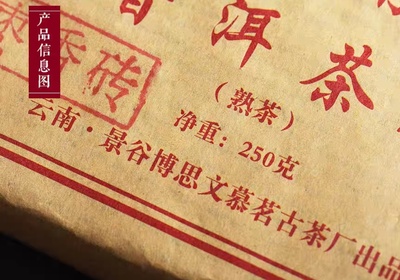 产品信息图
普洱茶
枣香砖
（熟茶）
净重：250克
云南·景谷博思文慕茗古茶厂出品